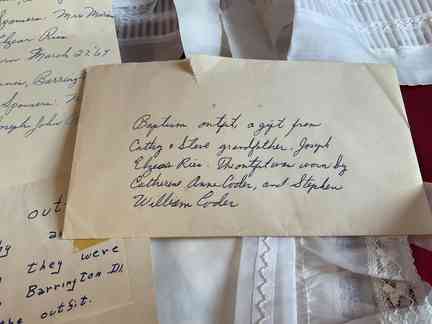 Sponsors. Mrs
Rico
Born March 23'64
Barrington
Sponsors.
Joseph John
Baptism outfit, a gift from
Cathy & Steve grandfather. Joseph
Elzear Rico. The outfit was worn by
Catherine Anne Coder, and Stephen
William Coder
out
they were
Barrington Ill.
the outfit.